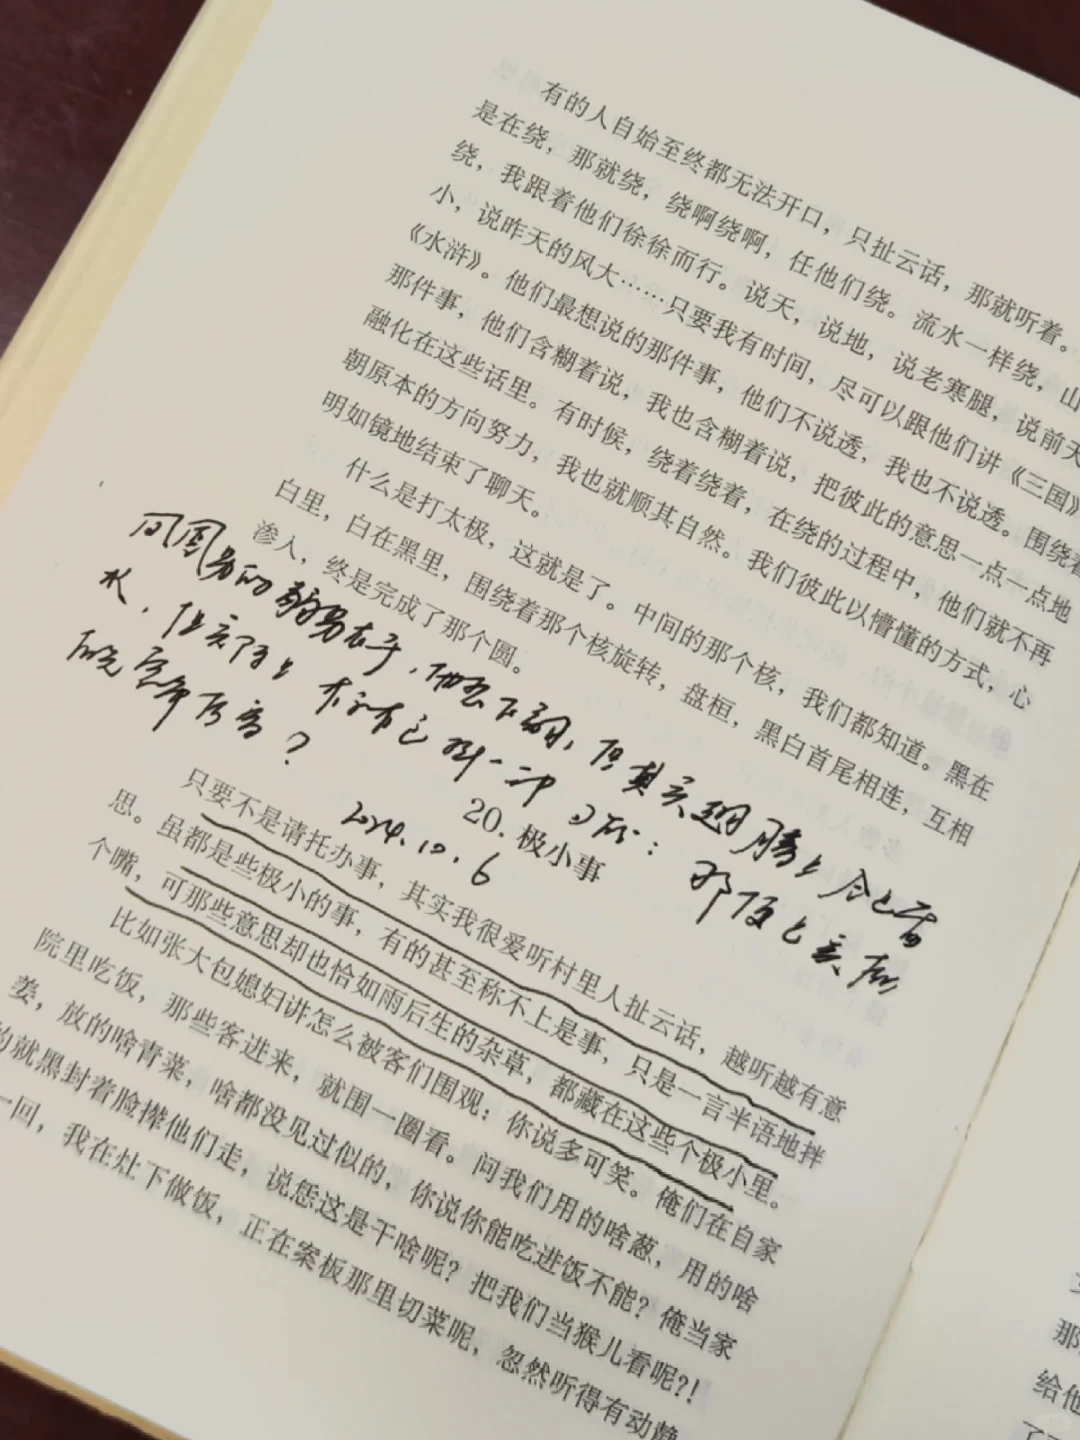 有的人自始至终都无法开口，只扯云话，那就听着。
是在绕，那就绕，绕啊绕啊，任他们绕。流水一样绕，山
绕，我跟着他们徐徐而行。说天，说地，说老寒腿，说前天
小，说昨天的风大……只要我有时间，尽可以跟他们讲《三国》
《水浒》。他们最想说的那件事，他们不说透，我也不说透。围绕着
那件事，他们含糊着说，我也含糊着说，把彼此的意思一点一点地
融化在这些话里。有时候，绕着绕着，在绕的过程中，他们就不再
朝原本的方向努力，我也就顺其自然。我们彼此以懵懂的方式，心
明如镜地结束了聊天。
什么是打太极，这就是了。中间的那个核，我们都知道。黑在
白里，白在黑里，围绕着那个核旋转，盘桓，黑白首尾相连，互相
渗入，终是完成了那个圆。
2024.10.6
20. 极小事
只要不是请托办事，其实我很爱听村里人扯云话，越听越有意
思。虽都是些极小的事，有的甚至称不上是事，只是一言半语地拌
个嘴，可那些意思却也恰如雨后生的杂草，都藏在这些个极小里。
比如张大包媳妇讲怎么被客们围观：你说多可笑。俺们在自家
院里吃饭，那些客进来，就围一圈看。问我们用的啥葱，用的啥
姜，放的啥青菜，啥都没见过似的，你说你能吃进饭不能？俺当家
的就黑封着脸撵他们走，说恁这是干啥呢？把我们当猴儿看呢？！
一回，我在灶下做饭，正在案板那里切菜呢，忽然听得有动静
那
给他